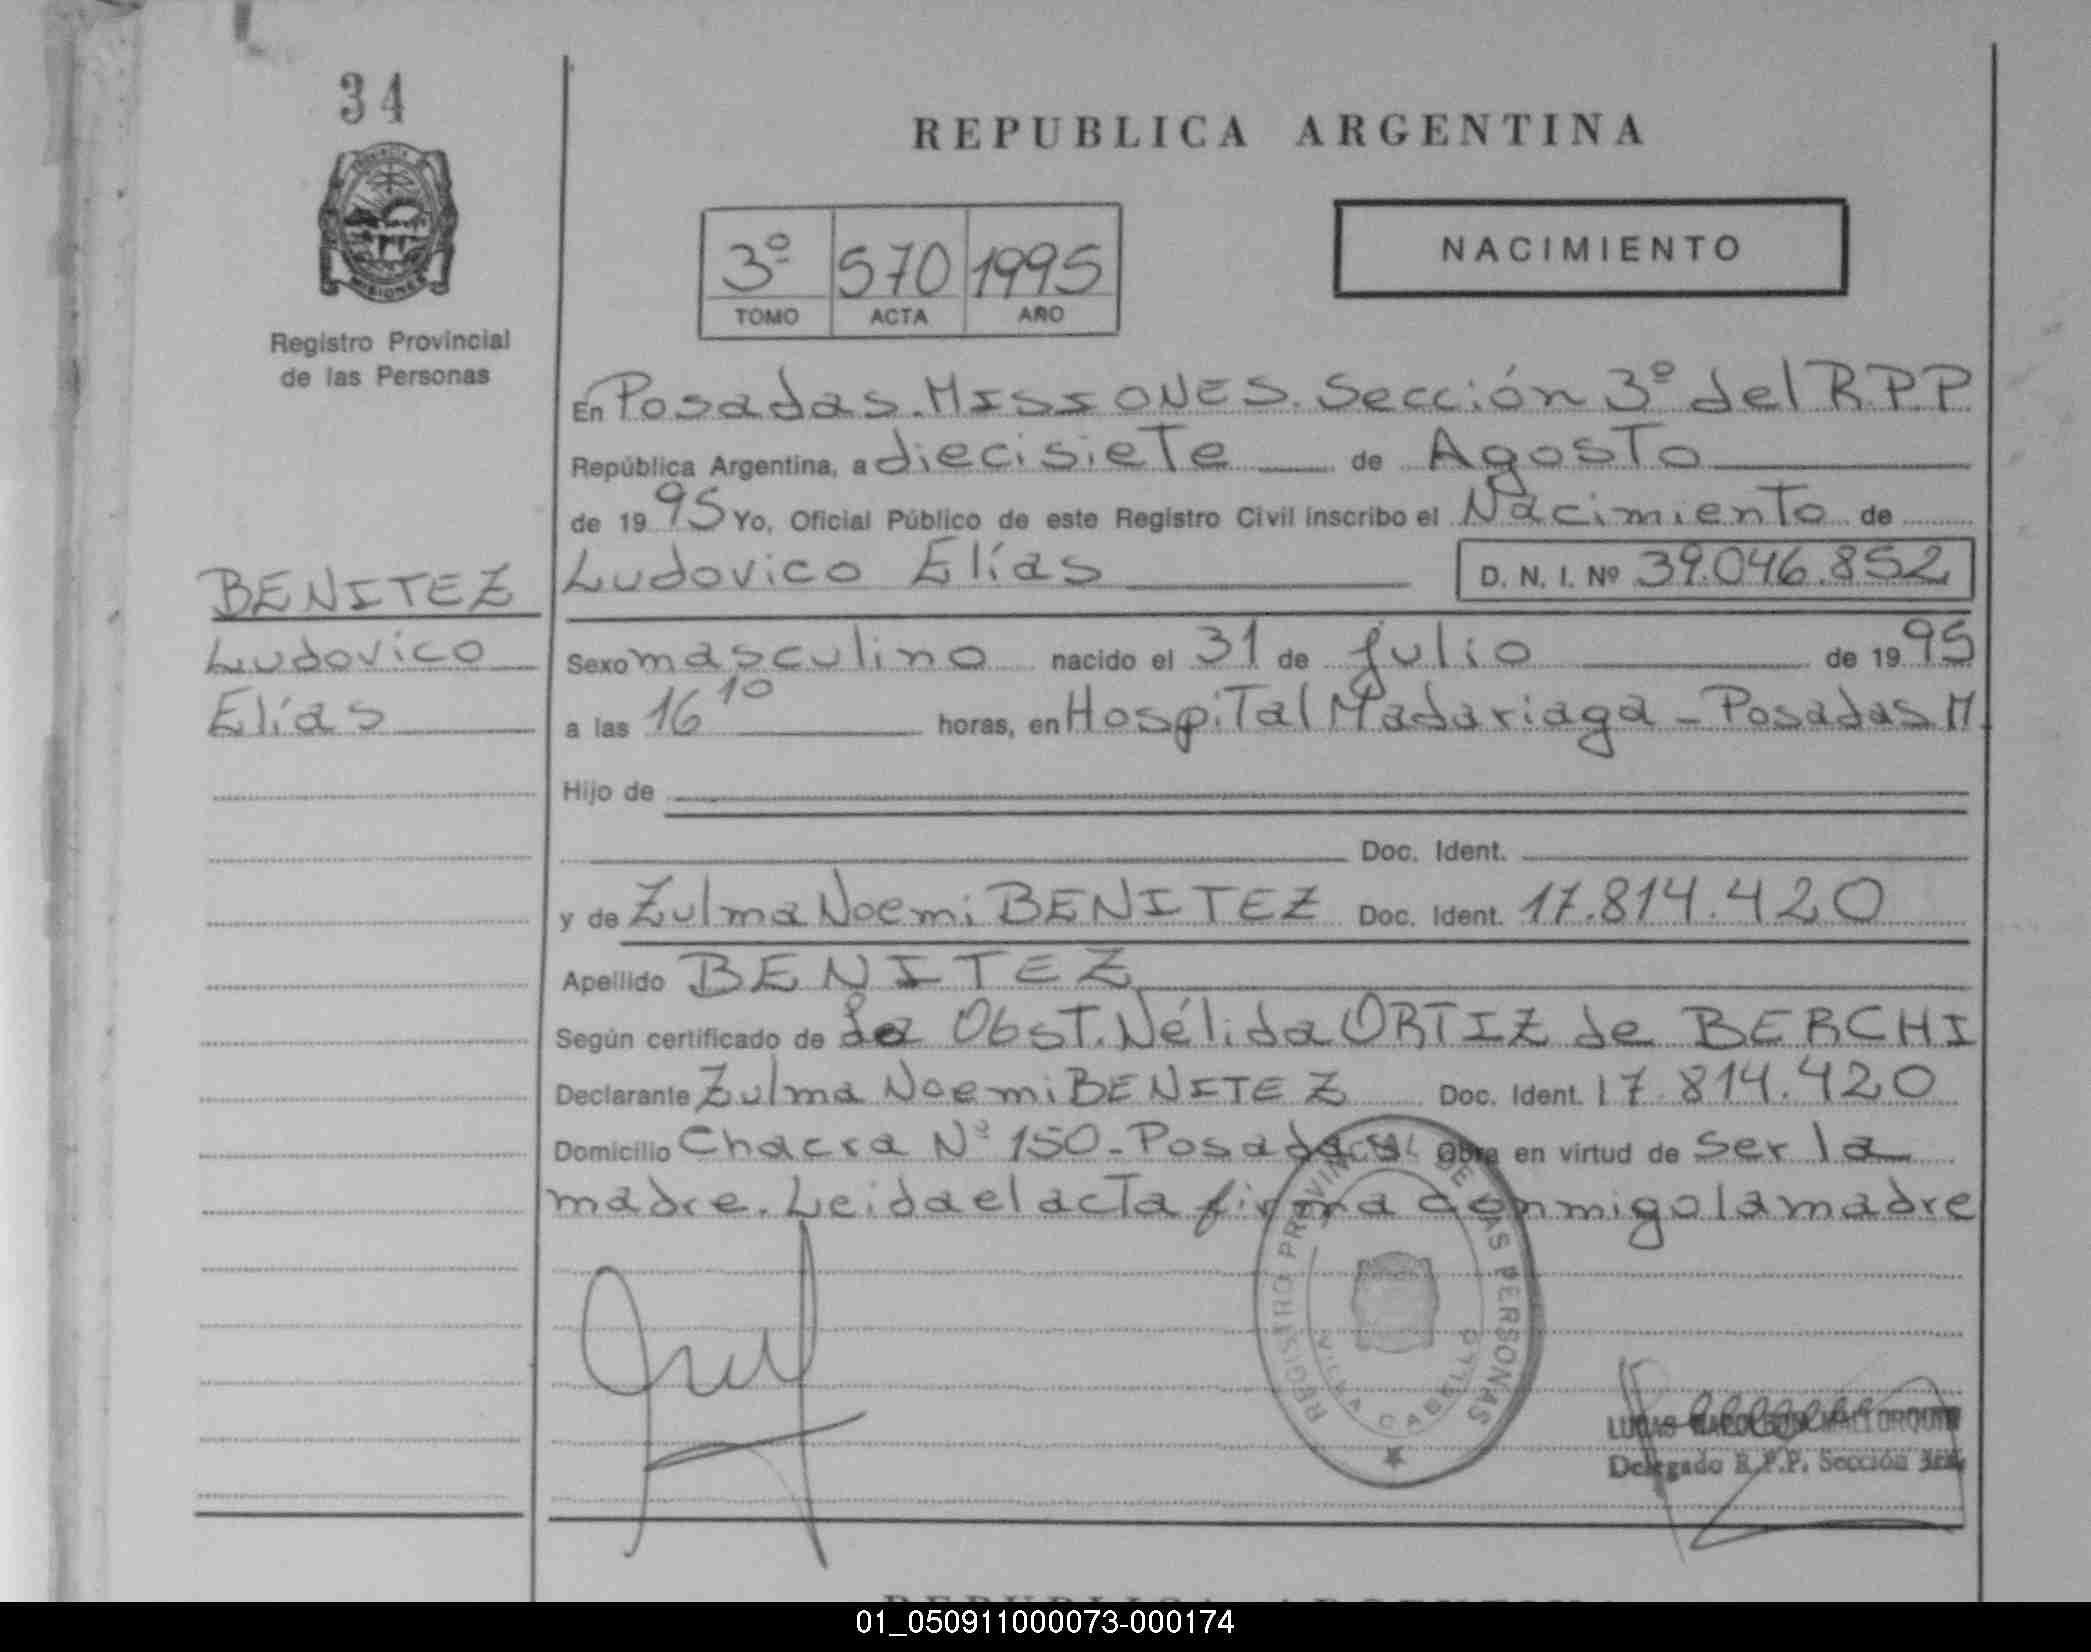 34
REPUBLICA ARGENTINA
MISIONES
Registro Provincial
de las Personas
3º 570 1995
TOMO ACTA AÑO
NACIMIENTO
En Posadas. MISIONES. Sección 3º del R.P.P
República Argentina, a diecisiete de Agosto
de 1995 Yo, Oficial Público de este Registro Civil inscribo el Nacimiento de
Ludovico Elías D. N. I. Nº 39.046.852
BENITEZ
Ludovico
Elías
Sexo masculino nacido el 31 de julio de 1995
a las 16 10 horas, en Hospital Madariaga - Posadas M.
Hijo de
Doc. Ident.
y de Zulma Noemi BENITEZ Doc. Ident. 17.814.420
Apellido BENITEZ
Según certificado de La Obst. Nélida ORTIZ de BERCHI
Declarante Zulma Noemi BENITEZ Doc. Ident. 17.814.420
Domicilio Chacra Nº 150 - Posadas Obra en virtud de ser la
madre. Leida el acta firma conmigo la madre
REGISTRO PROVINCIAL DE LAS PERSONAS
VILLA CABELLO
LUCAS
Delegado R.P.P. Sección
01_050911000073-000174